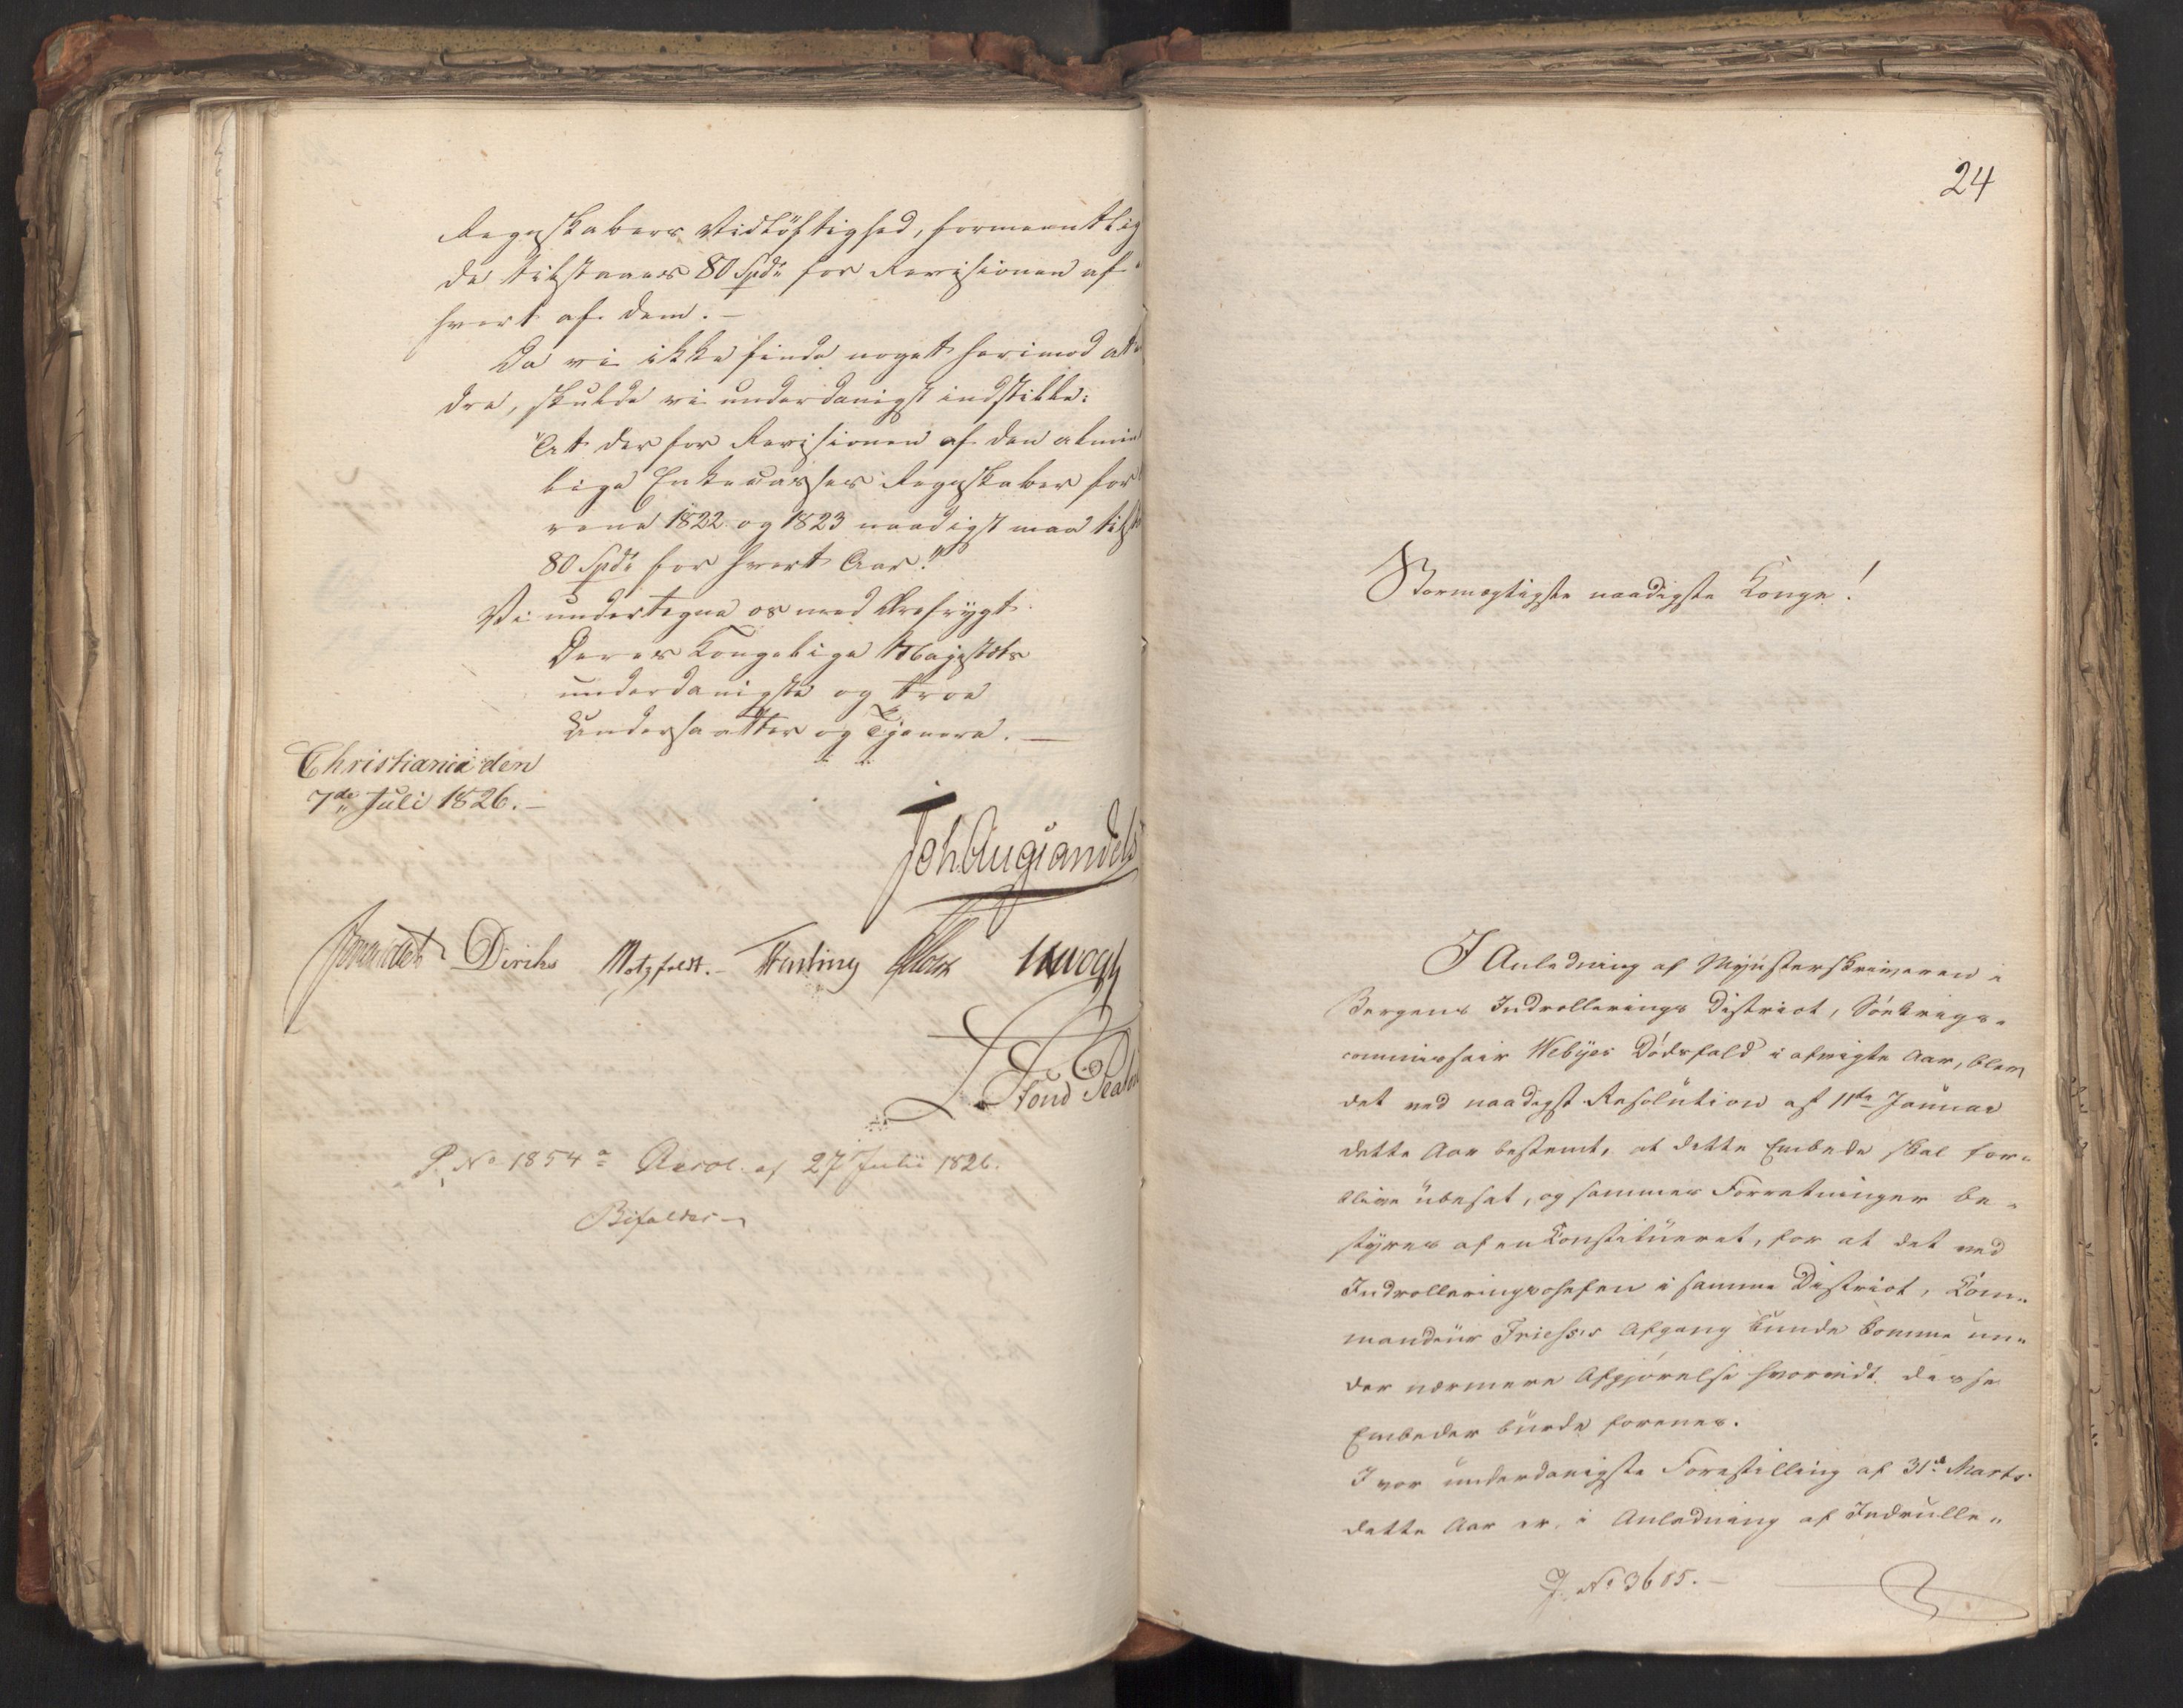 Regnskabers Vidtløftighed, formeentlig
de tilstaaes 80 Spd: for Revisionen af
hvert af dem. –
Da vi ikke finde noget herimod at
dre, skulde vi underdanigst indstille:
"At der for Revisionen af den almin
lige Enkecasses Regnskaber for
rene 1822 og 1823 naadigst maa tilst
80 Spd: for hvert Aar."
Vi undertegne os med Ærefrygt
Deres Kongelige Majestæts
underdanigste og troe
Undersaatter og Tjenere. –
Christiania den
7de Juli 1826. –
Joh. Aug: Sandels
Diriks Motzfeldt. Krog
P. No 1854 a Resol. af 27 Julii 1826.
Bifaldes
24
Stormægtigste naadigste Konge!
I Anledning af Mynsterskriveren i
Bergens Indrollerings District, Søekrigs-
commissair Webyes Dødsfald i afvigte Aar, blev
det ved naadigst Resolution af 11te Januar
dette Aar bestemt, at dette Embede skal for-
blive ubesat, og sammes Forretninger be-
styres af en Constitueret, for at det ved
Indrolleringschefen i samme District, Com-
mandeur Friess's Afgang kunde komme un-
der nærmere Afgjørelse hvorvidt disse
Embeder burde forenes.
I vor underdanigste Forestilling af 31te Marts
dette Aar er, i Anledning af Indrulle-
J. No 3605. –